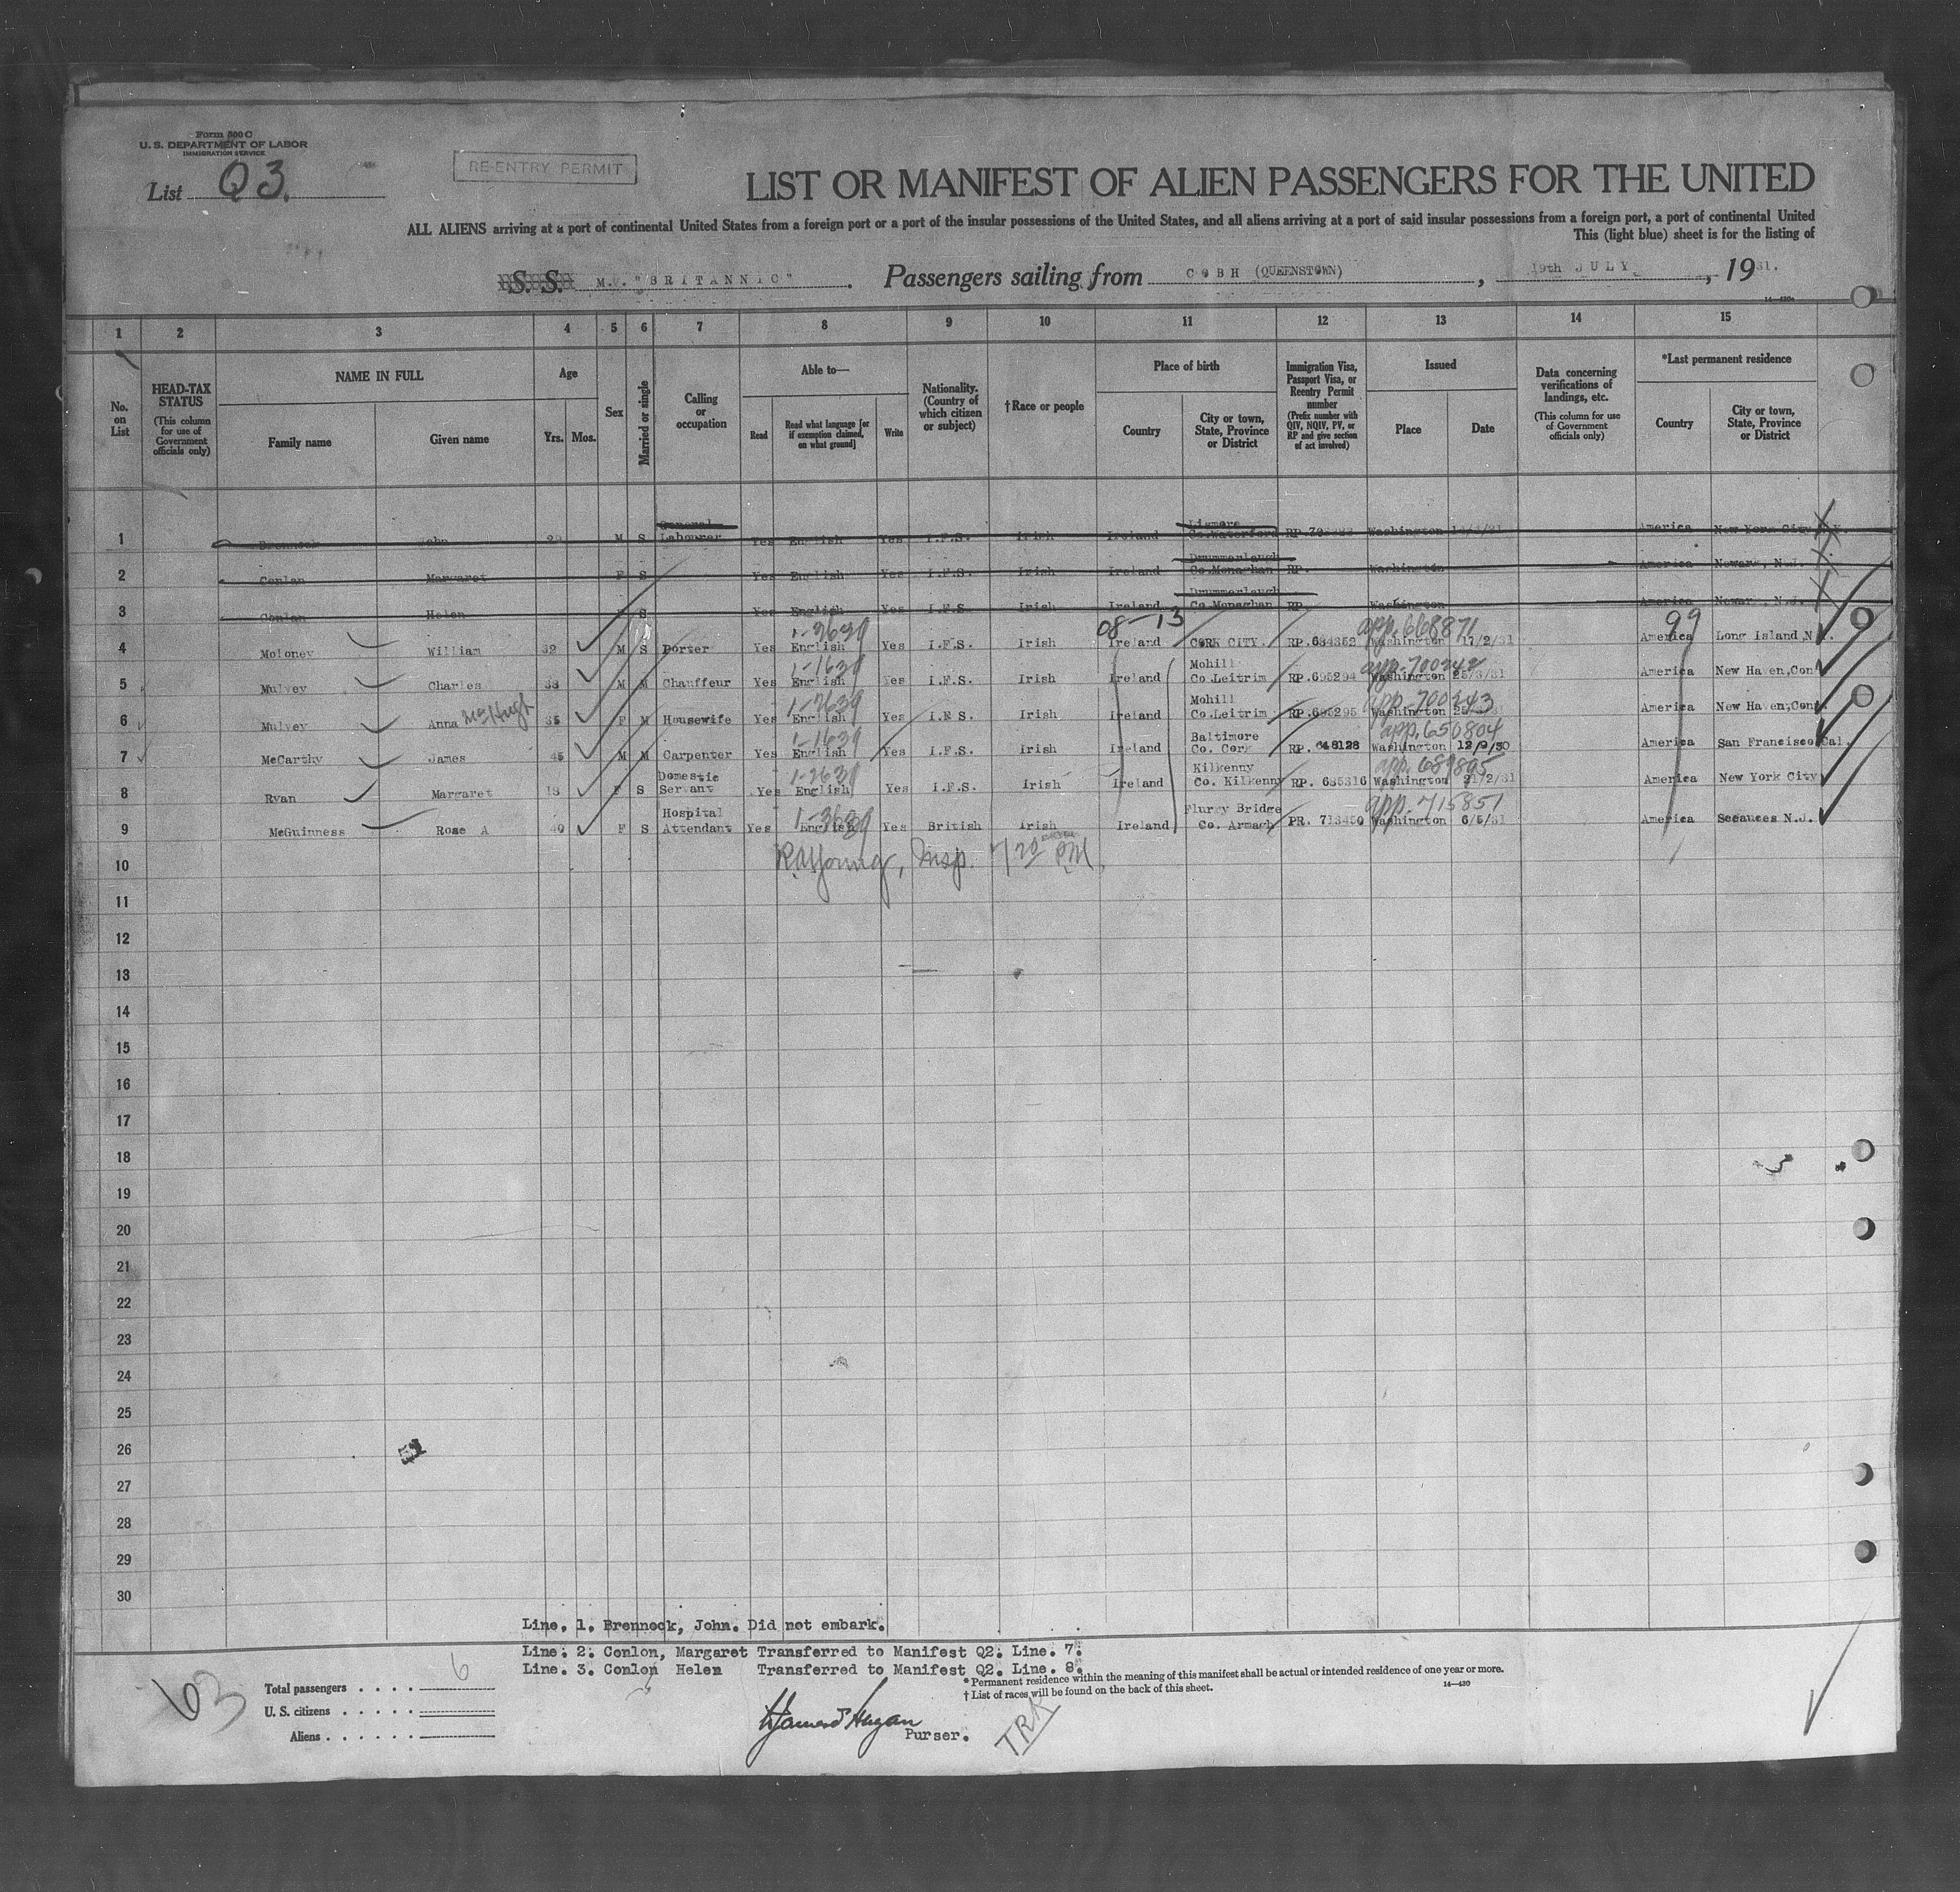 Form 500 C
U. S. DEPARTMENT OF LABOR
IMMIGRATION SERVICE
List Q3.
RE-ENTRY PERMIT
LIST OR MANIFEST OF ALIEN PASSENGERS FOR THE UNITED
ALL ALIENS arriving at a port of continental United States from a foreign port or a port of the insular possessions of the United States, and all aliens arriving at a port of said insular possessions from a foreign port, a port of continental United
This (light blue) sheet is for the listing of
S. S. M.V. "BRITANNIC" . Passengers sailing from COBH (QUEENSTOWN) , 19th JULY , 1931.
14—430a
1 2 3 4 5 6 7 8 9 10 11 12 13 14 15
No. on List
HEAD-TAX STATUS (This column for use of Government officials only)
NAME IN FULL
Family name Given name
Age
Yrs. Mos.
Sex
Married or single
Calling or occupation
Able to—
Read Read what language [or if exemption claimed, on what ground] Write
Nationality. (Country of which citizen or subject)
†Race or people
Place of birth
Country City or town, State, Province or District
Immigration Visa, Passport Visa, or Reentry Permit number (Prefix number with QIV, NQIV, PV, or RP and give section of act involved)
Issued
Place Date
Data concerning verifications of landings, etc. (This column for use of Government officials only)
*Last permanent residence
Country City or town, State, Province or District
1 Brennock John M S General Labourer Yes English Yes I.F.S. Irish Ireland Lismore Co.Waterford RP. Washington America New York City
2 Conlan Margaret F S Yes English Yes I.F.S. Irish Ireland Drummerlaugh Co.Monaghan RP. Washington America Newark, N.J.
3 Conlan Helen S Yes English Yes I.F.S. Irish Ireland Drummerlaugh Co.Monaghan RP. Washington America Newark, N.J.
08-13 app. 668871 99
4 Moloney William 32 M S Porter Yes English Yes I.F.S. Irish Ireland CORK CITY. RP.684352 Washington 17/2/31 America Long Island,N.Y.
app. 700242
5 Mulvey Charles 38 M M Chauffeur Yes English Yes I.F.S. Irish Ireland Mohill Co.Leitrim RP.695294 Washington 25/3/31 America New Haven,Con.
app. 700243
6 Mulvey Anna McHugh 35 F M Housewife Yes English Yes I.F.S. Irish Ireland Mohill Co.Leitrim RP.695295 Washington America New Haven,Con.
app. 650804
7 McCarthy James 45 M M Carpenter Yes English Yes I.F.S. Irish Ireland Baltimore Co. Cork RP. 648128 Washington 12/9/30 America San Francisco Cal.
app. 689805
8 Ryan Margaret 18 F S Domestic Servant Yes English Yes I.F.S. Irish Ireland Kilkenny Co. Kilkenny RP. 685316 Washington 21/2/31 America New York City
app. 715851
9 McGuinness Rose A 40 F S Hospital Attendant Yes English Yes British Irish Ireland Flurry Bridge Co. Armagh PR. 713450 Washington 6/5/31 America Secauces N.J.
10 Insp. 7 20 PM.
11
12
13
14
15
16
17
18
19
20
21
22
23
24
25
26
27
28
29
30
Line. 1. Brennock, John. Did not embark.
Line. 2. Conlon, Margaret Transferred to Manifest Q2. Line. 7.
Line. 3. Conlon Helen Transferred to Manifest Q2. Line. 8.
*Permanent residence within the meaning of this manifest shall be actual or intended residence of one year or more.
† List of races will be found on the back of this sheet.
14—430
63
Total passengers . . . . 6
U. S. citizens . . . . .
Aliens . . . . . .
Purser.
TRK